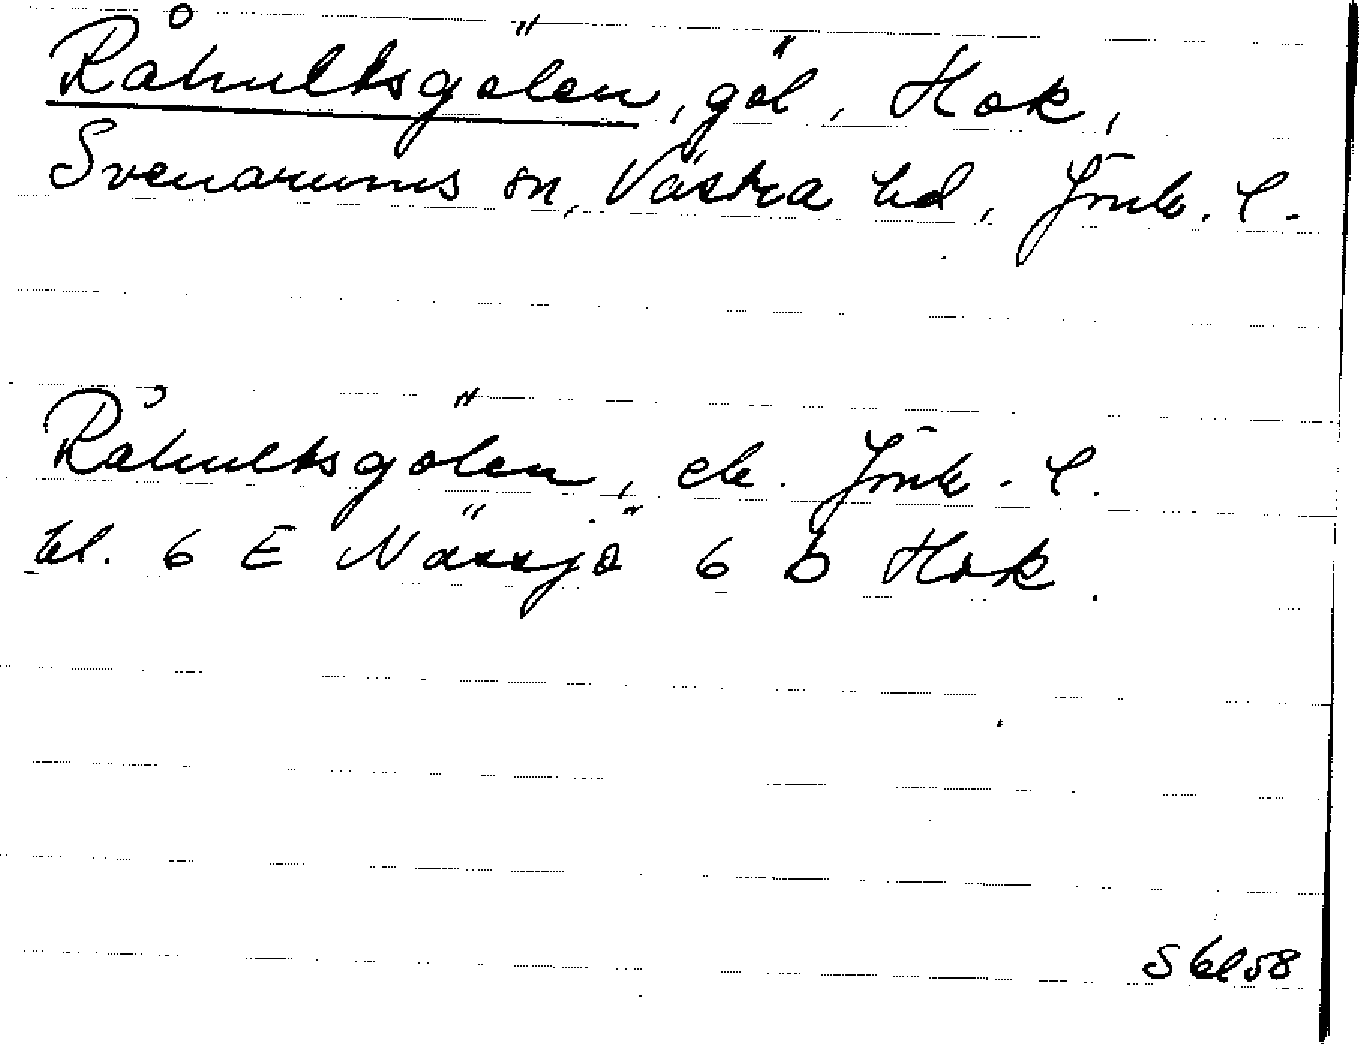 Råhultsgölen, göl, Hok,
Svenarums sn, Västra hd, Jönk. l.
Råhultsgölen, ek. Jönk. l.
bl. 6 E Nässjö 6 b Hok.